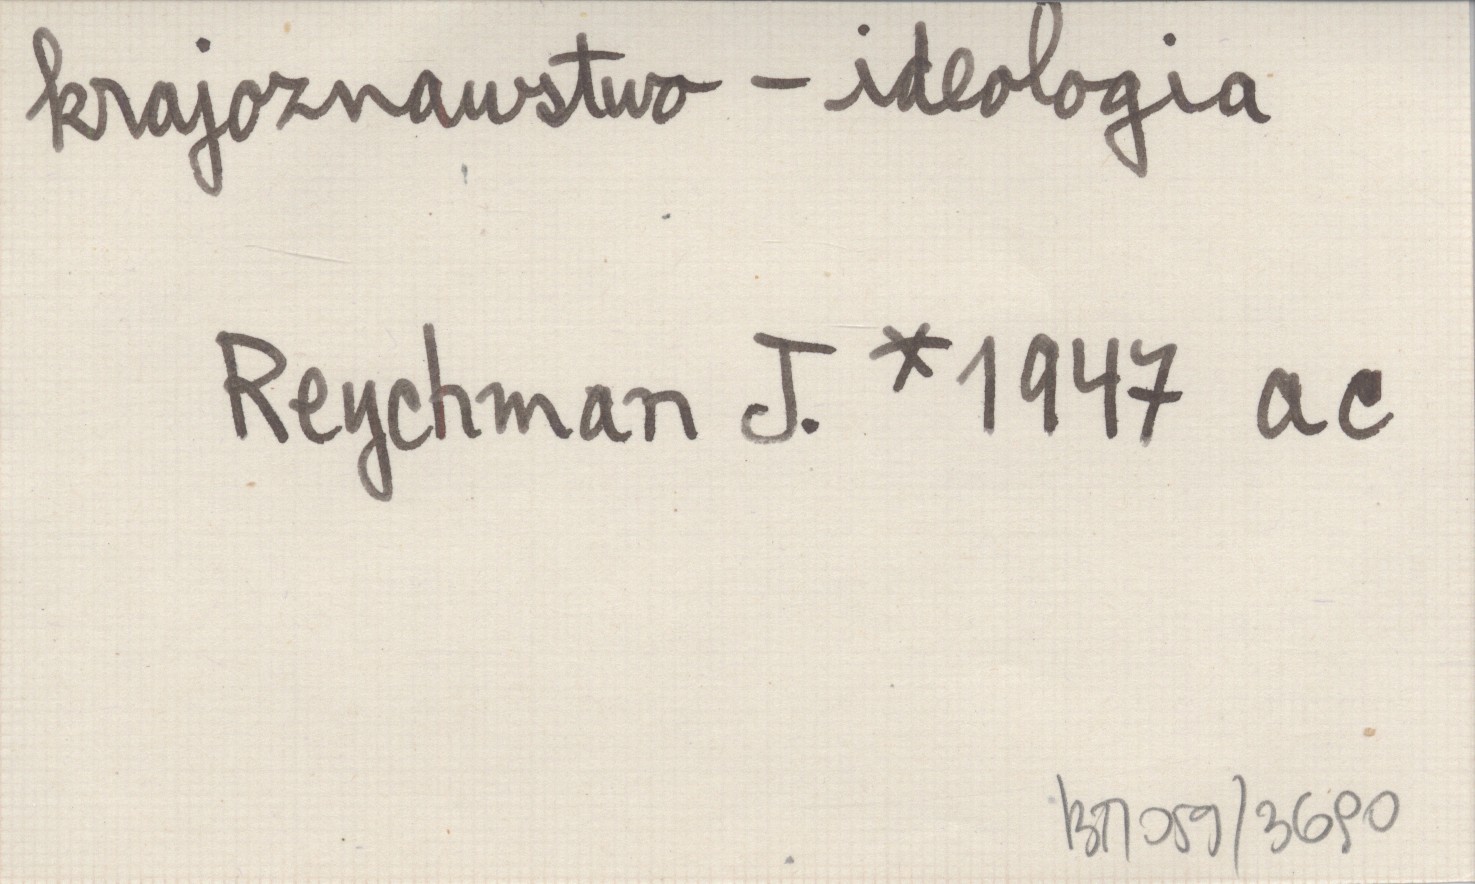 krajoznawstwo - ideologia
Reychman J. *1947 ac